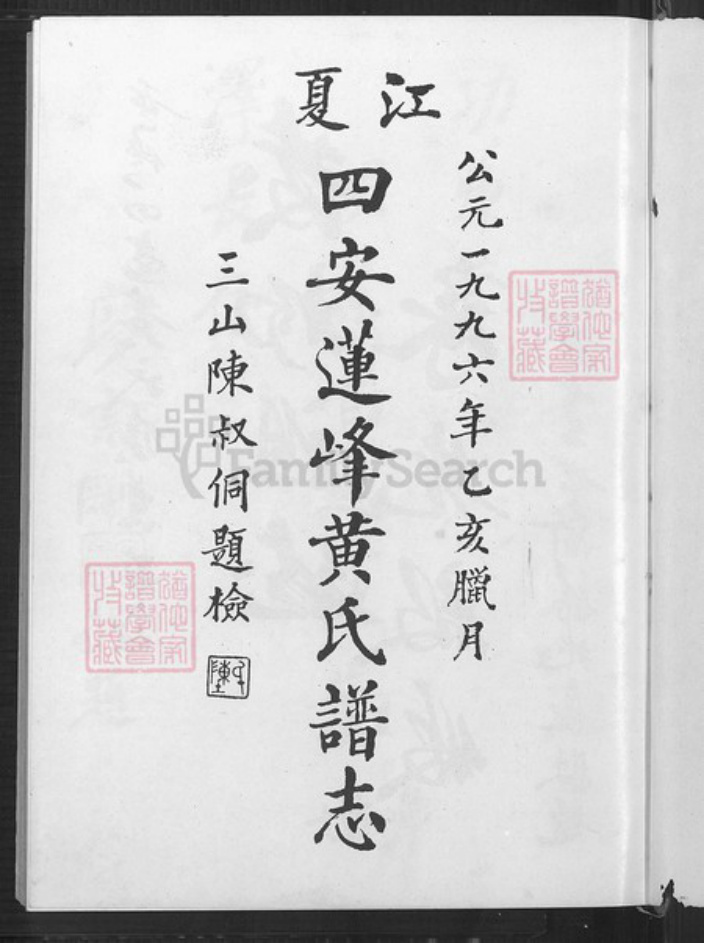 江夏
公元一九九六年乙亥臘月
四安蓮峰黃氏譜志
三山陳叔侗題檢
猶他家
譜學會
特藏
猶他家
譜學會
特藏
FamilySearch